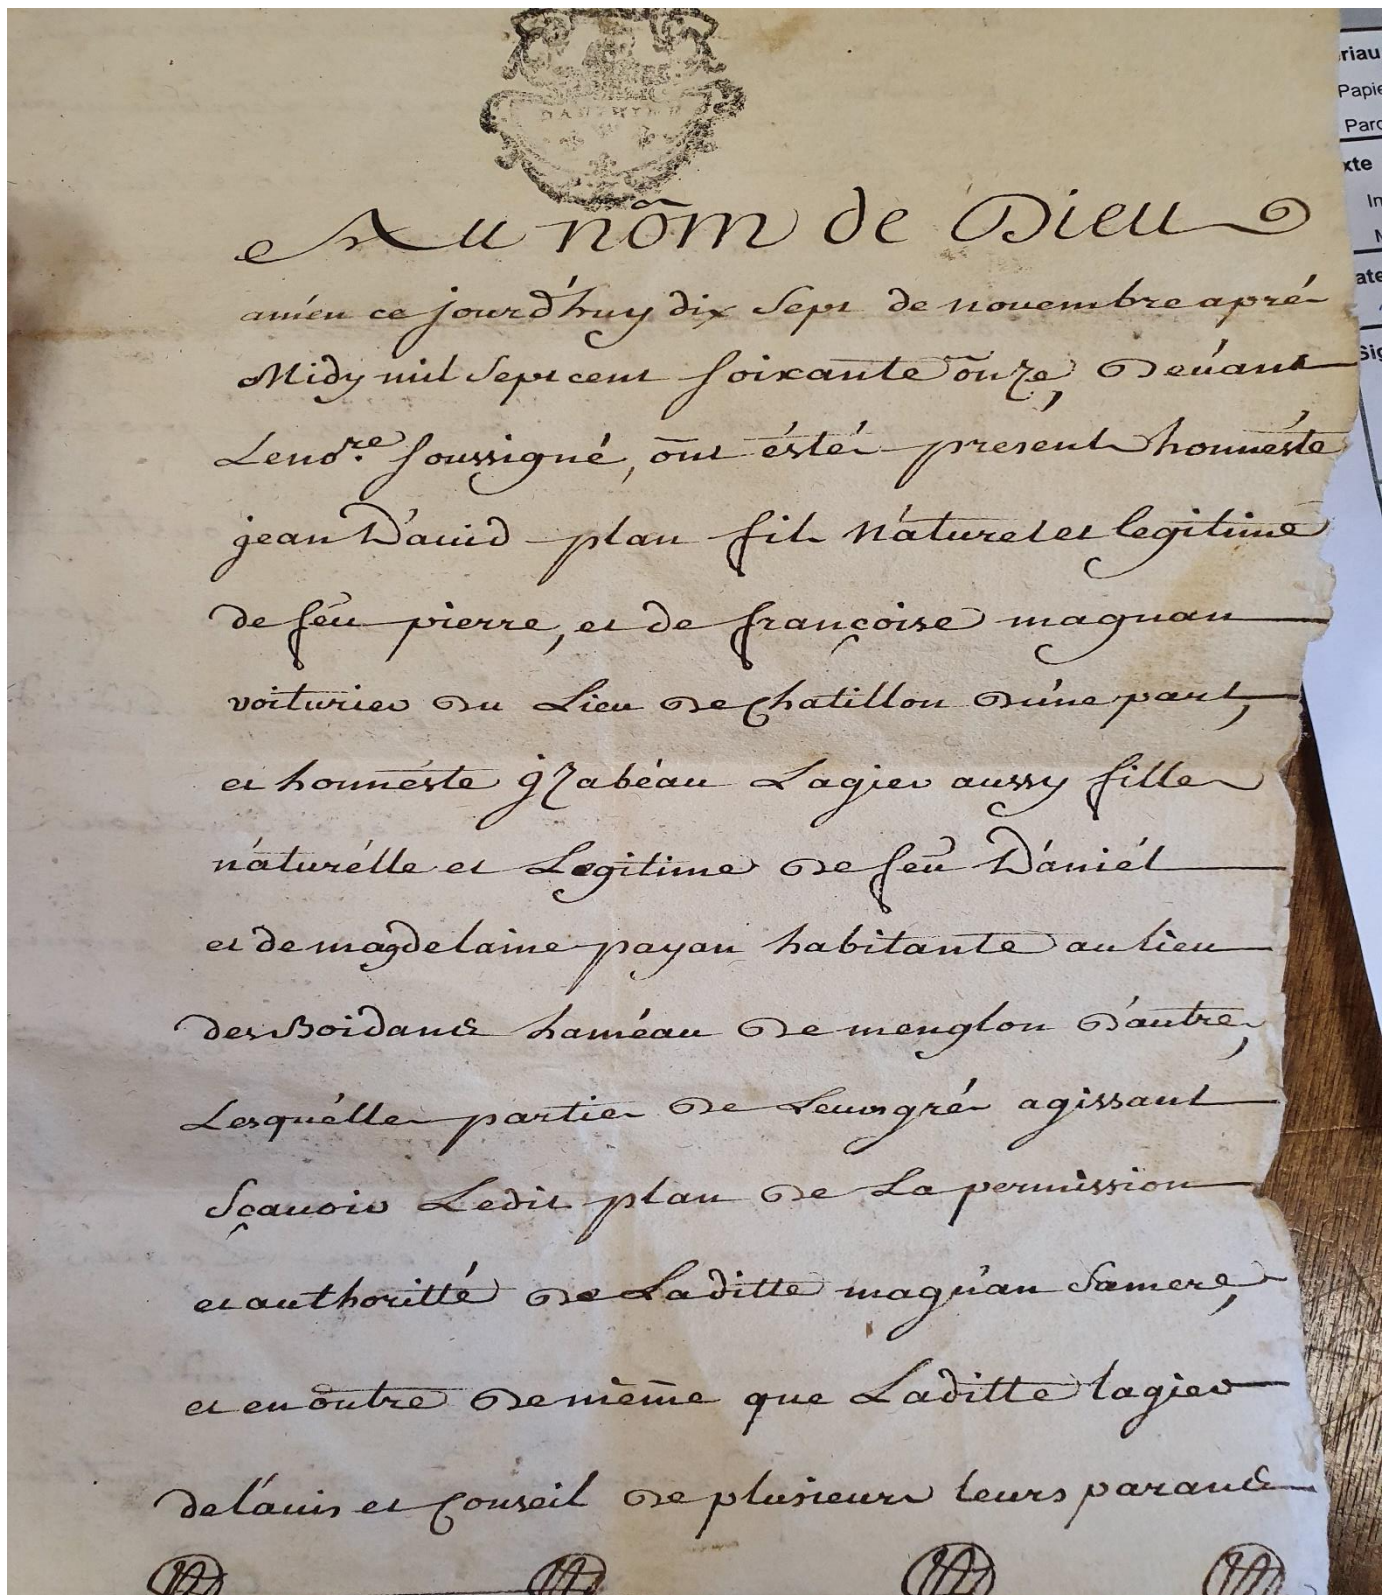 DAUPHINE
Au nom de Dieu
amén ce jourd'huy dix Sept de novembre apré
Midy mil Sept cent soixante onze, Devant
Le no.re soussigné, ont ésté present honnéste
jean David plan fils náturel et legitime
de feu pierre, et de françoise magnan
voiturier du Lieu de Chatillon d'úne part,
et honnéste yzabéau Lagier aussy fille
náturélle et Legitime de feu Dániél
et de magdelaine payan habitante au lieu
des Boidans haméau de menglon d'autre,
Lesquélles parties de Leurs gré agissant
Sçavoir Ledit plan de La permission
et authoritté de Laditte magnan Sa mere,
et en outre de méme que Laditte lagier
de l'avis et Conseil de plusieurs leurs parans
riau
Papie
Parc
xte
In
ate
Sig